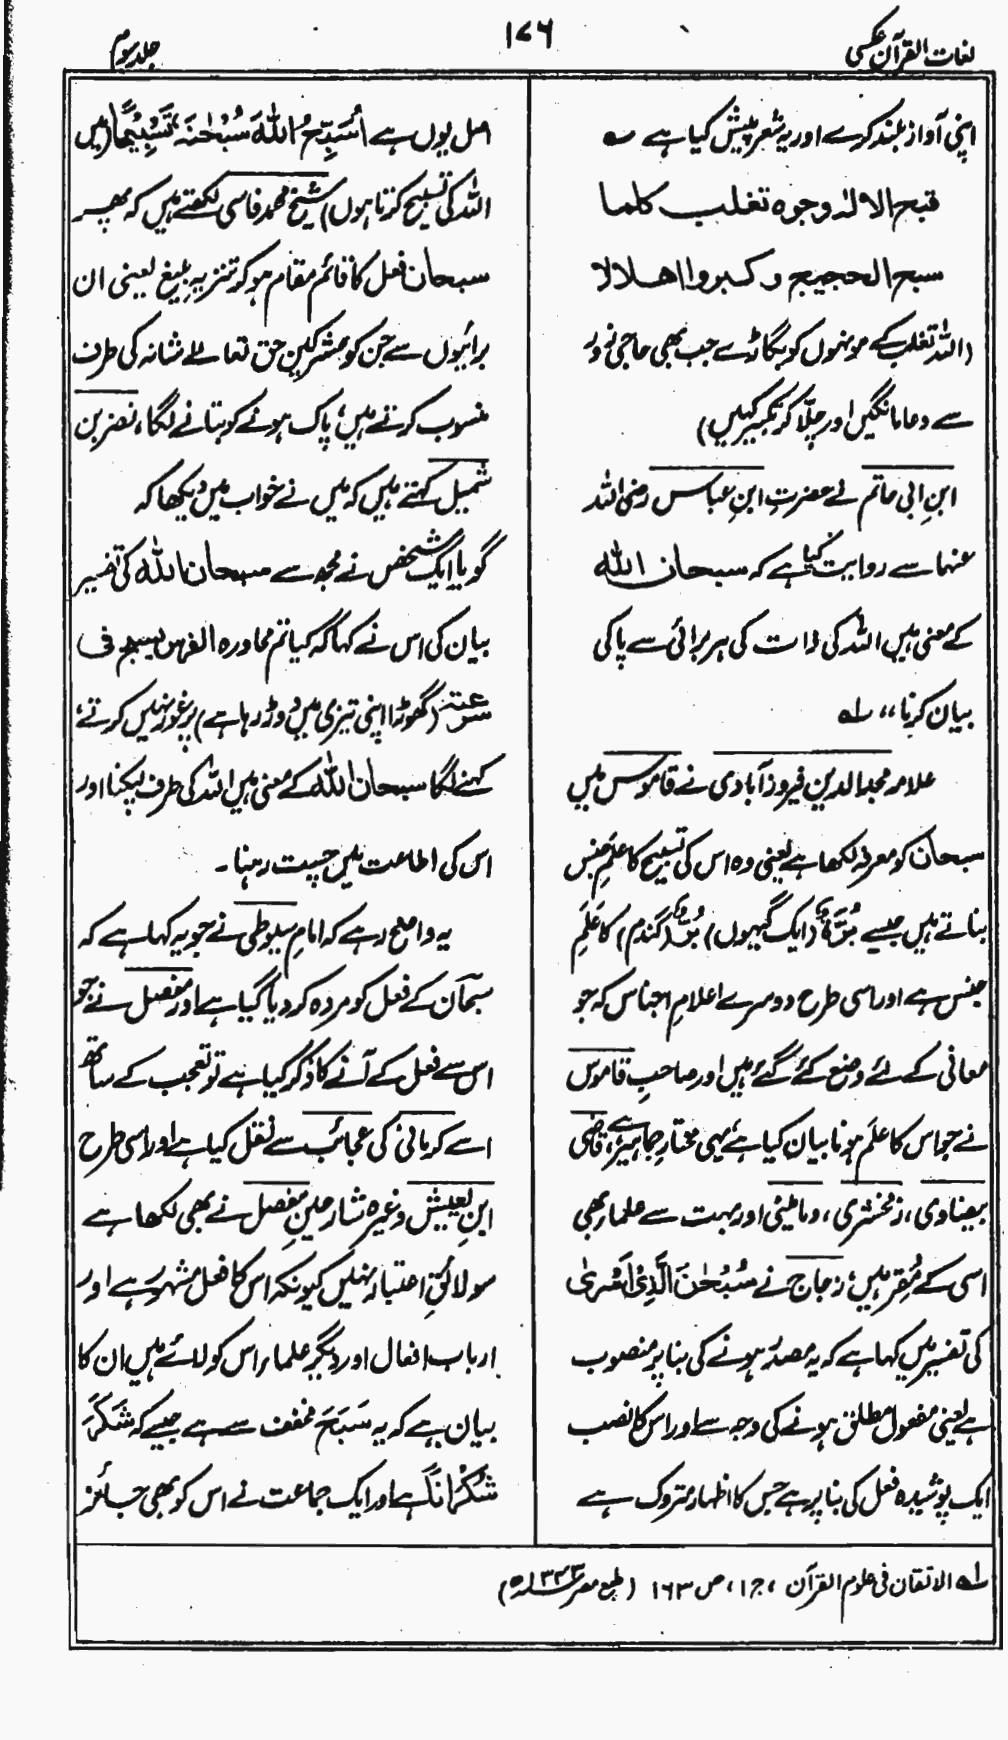 لغات القرآن عکسی
۱۷۶
جلد سوم
اپنی آواز بلند کرے اور یہ شعر پیش کیا ہے ؎
قبح الالہ وجوہ تغلب کلما
سبح الحجیج وکبروا اھلالا
(اللہ تغلب کے مونہوں کو بگاڑے جب بھی حاجی زور
سے دعا مانگیں اور چلّا کر تکبیر کہیں)
ابن ابی حاتم نے حضرت ابن عباس رضی اللہ
عنہما سے روایت کیا ہے کہ سبحان اللہ
کے معنی ہیں اللہ کی ذات کی ہر برائی سے پاکی
بیان کرنا،، لہ
علامہ مجد الدین فیروزآبادی نے قاموس میں
سبحان کو معرفہ لکھا ہے یعنی وہ اس کی تسبیح کا علم جنس
بتاتے ہیں جیسے بُرَّةٌ (ایک گیہوں) بُرٌّ (گندم) کا عَلَمِ
جنس ہے اور اسی طرح دوسرے اعلامِ اجناس کہ جو
معانی کے لئے وضع کئے گئے ہیں اور صاحبِ قاموس
نے جو اس کا علَم ہونا بیان کیا ہے یہی مختارِ جماہیر ہے، قاضی
بیضاوی، زمخشری، دمامینی اور بہت سے علماء بھی
اسی کے مُقِر ہیں، زجاج نے سُبْحٰنَ الَّذِیْ اَسْرٰی
کی تفسیر میں کہا ہے کہ یہ مصدر ہونے کی بنا پر منصوب
ہے یعنی مفعول مطلق ہونے کی وجہ سے اور اس کا نصب
ایک پوشیدہ فعل کی بنا پر ہے جس کا اظہار متروک ہے
اصل یوں ہے اُسَبِّحُ اللّٰهَ سُبْحٰنَهٗ تَسْبِیْحًا (میں
اللہ کی تسبیح کرتا ہوں) شیخ محمد فاسی لکھتے ہیں کہ پھر
سبحان فعل کا قائم مقام ہو کر تنزیہِ بلیغ یعنی ان
برائیوں سے جن کو مشرکین حق تعالےٰ شانہ کی طرف
منسوب کرتے ہیں، پاک ہونے کو بتانے لگا، نضر بن
شمیل کہتے ہیں کہ میں نے خواب میں دیکھا کہ
گویا ایک شخص نے مجھ سے سبحان اللہ کی تفسیر
بیان کی اس نے کہا کہ کیا تم محاورہ الفرس یسبح فی
سرعتہ (گھوڑا اپنی تیزی میں دوڑ رہا ہے) پر غور نہیں کرتے،
کہنے لگا سبحان اللہ کے معنی ہیں اللہ کی طرف لپکنا اور
اس کی اطاعت میں چست رہنا۔
یہ واضح رہے کہ امام سیوطی نے جو یہ کہا ہے کہ
سبحان کے فعل کو مردہ کر دیا گیا ہے اور مفصل نے جو
اس سے فعل کے آنے کا ذکر کیا ہے تو تعجب کے ساتھ
اسے کرمانی کی عجائب سے نقل کیا ہے اور اسی طرح
ابن یعیش وغیرہ شارحینِ مفصل نے بھی لکھا ہے
سو لائقِ اعتبار نہیں کیونکہ اس کا فعل مشہور ہے اور
ارباب افعال اور دیگر علماء اس کو لائے ہیں ان کا
بیان ہے کہ یہ سَبَحَ مخفف سے ہے جیسے کہ شَکَرَ
شُکْرَانًا ہے اور ایک جماعت نے اس کو بھی جائز
لہ الاتقان فی علوم القرآن، ج ۱، ص ۱۶۳ (طبع مصر)